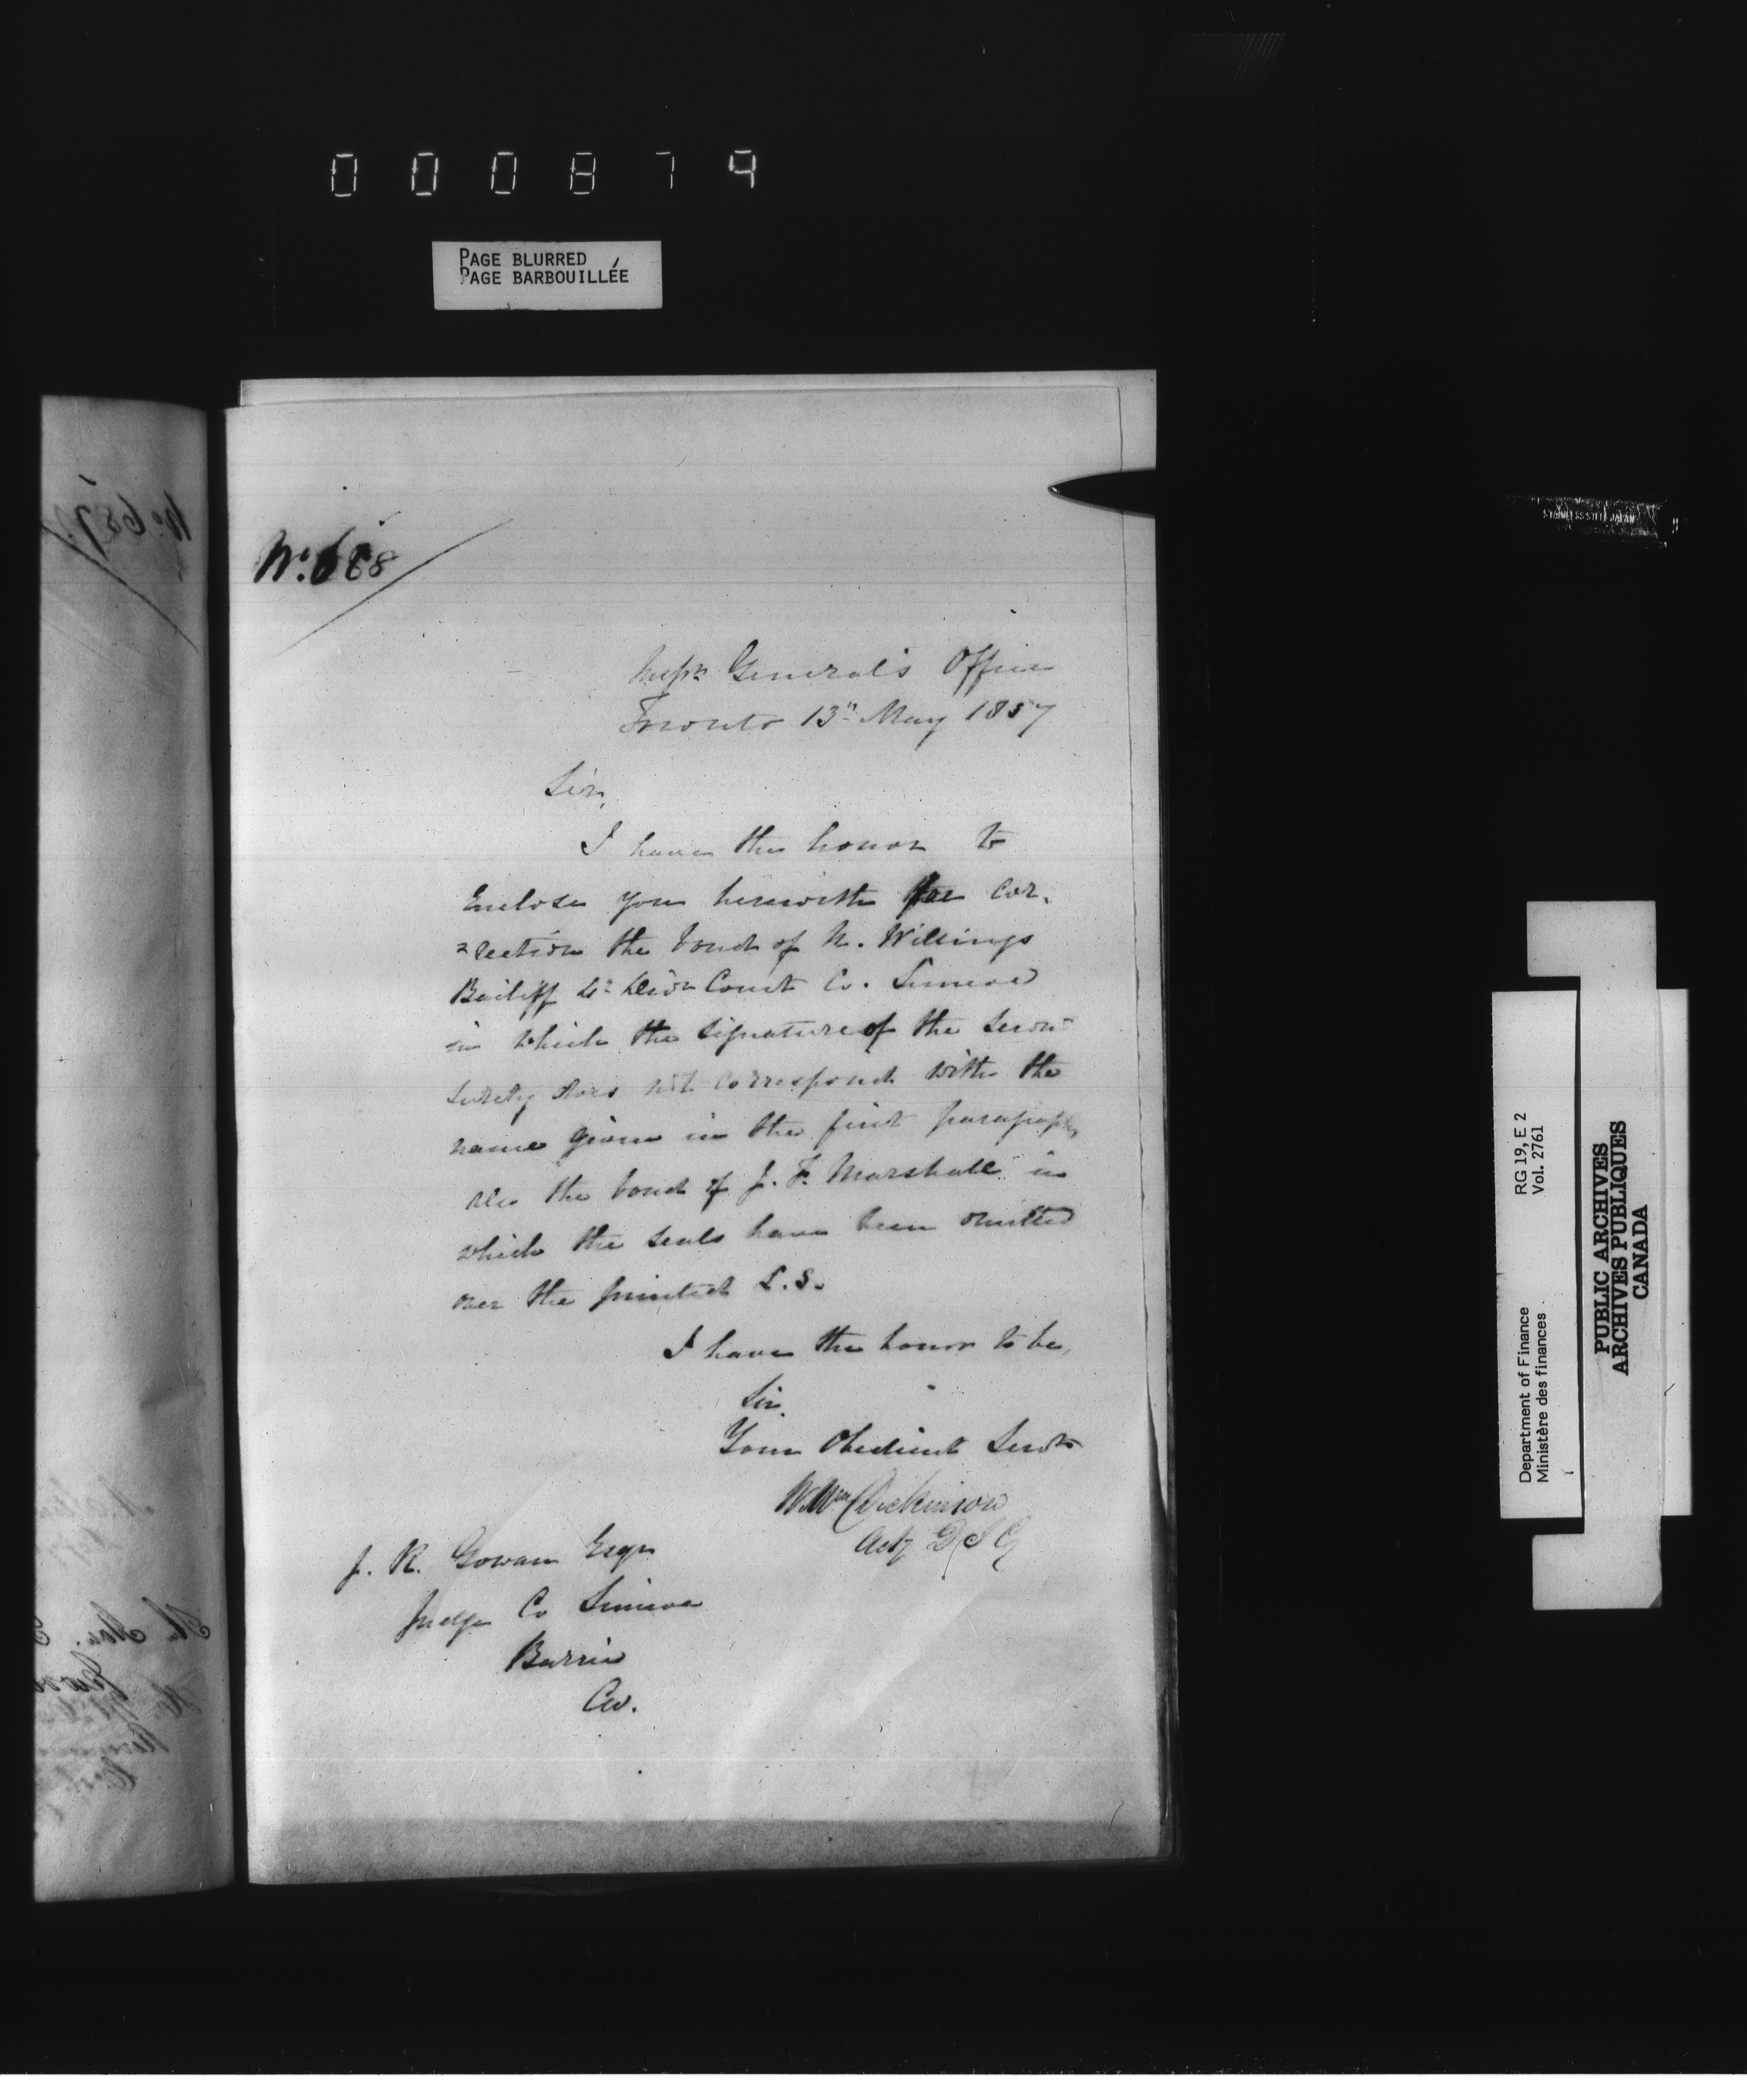 000874
PAGE BLURRED
PAGE BARBOUILLÉE
No. 687
No. 688
Inspr. General's Office
Toronto 13th May 1857
Sir,
I have the honor to
Enclose you herewith for cor-
=rection the bond of N. Willings
Bailiff Divn Court Co. Simcoe
in which the signature of the
surety does not correspond with the
name given in the first paragraph
also the bond of J. F. Marshall in
which the seals have been omitted
over the printed L.S.
I have the honor to be,
Sir,
Your Obedient Servt
Wm Dickinson
Actg D I G
J. R. Gowan Esqr
Judge Co Simcoe
Barrie
CW.
STAINLESS STEEL JAPAN
Department of Finance RG 19, E 2
Ministère des finances Vol. 2761
PUBLIC ARCHIVES
ARCHIVES PUBLIQUES
CANADA